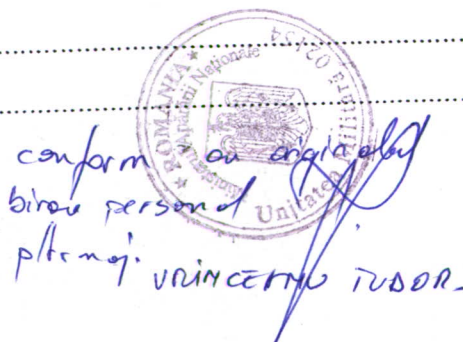 * ROMANIA *
Ministerul Apărării Naționale
Unitatea Militara 02454
conform cu originalul
birou personal
plt. maj. VRINCEANU TUDOR